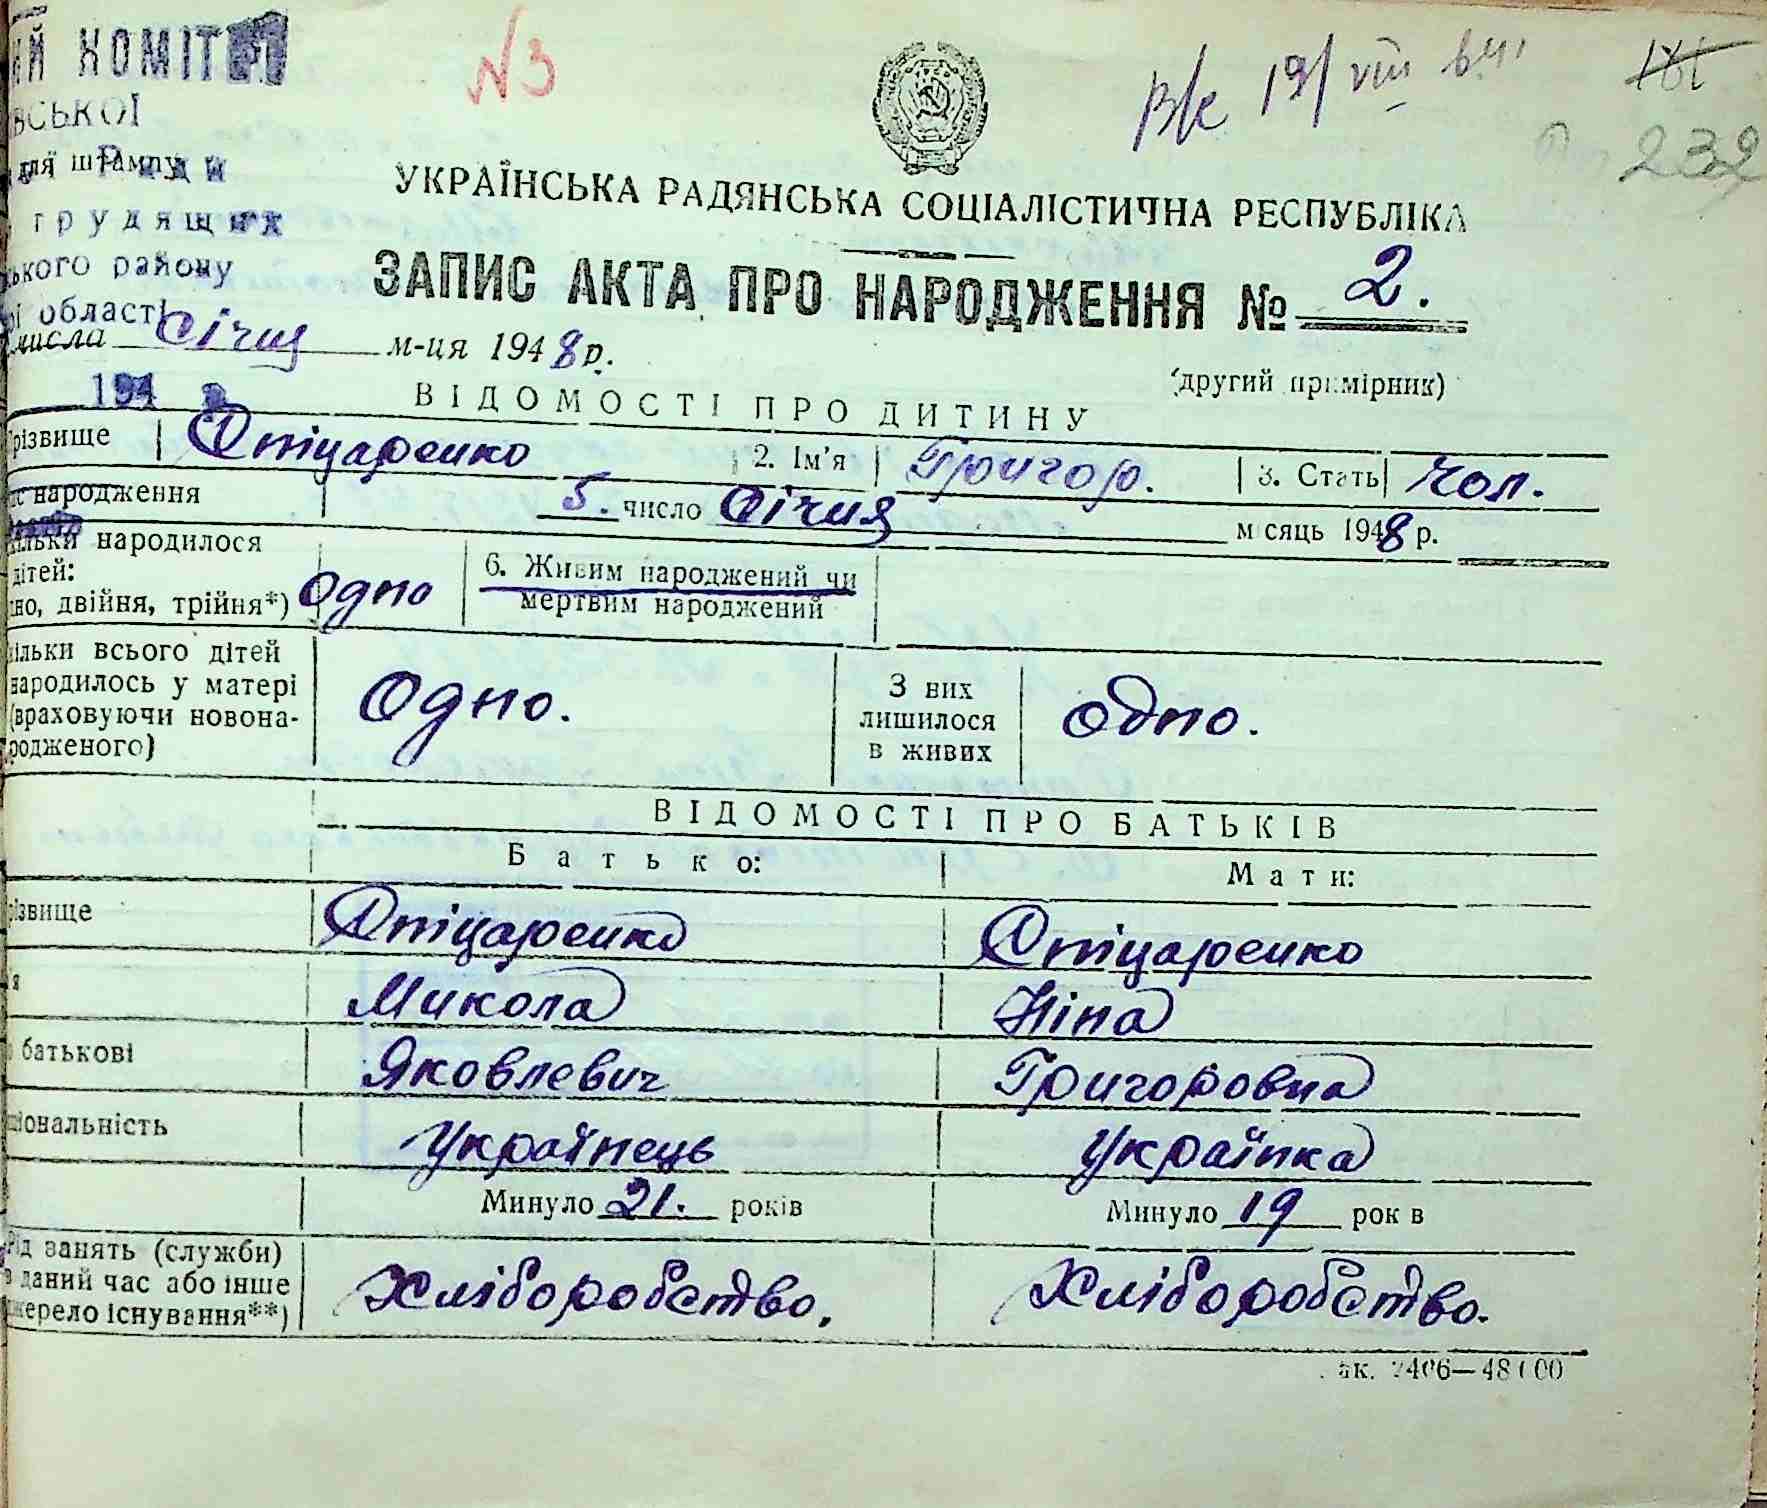 ИЙ КОМІТЕТ
ВСЬКОЇ
для штампу
Ради
трудящих
ького району
області
числа Січня м-ця 1948 р.
194
№3
В/к 19/VIII 64
181
232
УКРАЇНСЬКА РАДЯНСЬКА СОЦІАЛІСТИЧНА РЕСПУБЛІКА
ЗАПИС АКТА ПРО НАРОДЖЕННЯ № 2.
(другий примірник)
ВІДОМОСТІ ПРО ДИТИНУ
різвище Опіцаренко 2. Ім'я Григор. 3. Стать чол.
ас народження 5. число Січня місяць 1948 р.
кільки народилося
дітей:
дно, двійня, трійня*) Одно
6. Живим народжений чи
мертвим народжений
ільки всього дітей
народилось у матері
(враховуючи новона-
родженого)
Одно.
З них
лишилося
в живих
одно.
ВІДОМОСТІ ПРО БАТЬКІВ
Батько: Мати:
різвище Опіцаренко Опіцаренко
'я Микола Ніна
о батькові Яковлевич Григоровна
ціональність Українець Українка
Минуло 21. років Минуло 19 рок в
Рід занять (служби)
в даний час або інше
жерело існування**)
Хліборобство. Хліборобство.
ак. 2406—48100